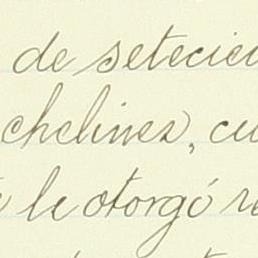 de setecie
chelines, cu
le otorgó re